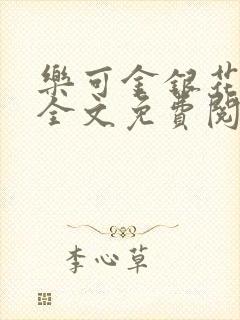 樂可金銀花
全文免費閱
李心草